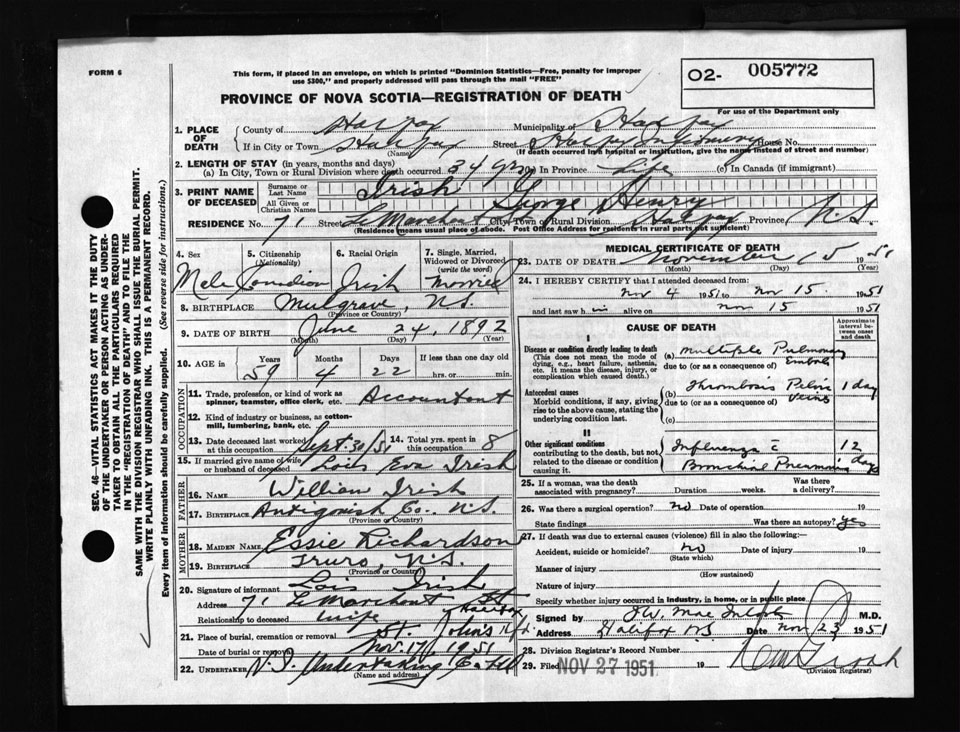 FORM 6
This form, if placed in an envelope, on which is printed "Dominion Statistics—Free, penalty for improper
use $300," and properly addressed will pass through the mail "FREE"
O2- 005772
For use of the Department only
PROVINCE OF NOVA SCOTIA—REGISTRATION OF DEATH
SEC. 46—VITAL STATISTICS ACT MAKES IT THE DUTY
OF THE UNDERTAKER OR PERSON ACTING AS UNDER-
TAKER TO OBTAIN ALL THE PARTICULARS REQUIRED
IN THE "REGISTRATION OF DEATH" AND TO FILE THE
SAME WITH THE DIVISION REGISTRAR WHO SHALL ISSUE THE BURIAL PERMIT.
WRITE PLAINLY WITH UNFADING INK. THIS IS A PERMANENT RECORD.
Every item of information should be carefully supplied. (See reverse side for instructions.)
1. PLACE OF DEATH
County of Halifax Municipality of Halifax
If in City or Town Halifax Street House No.
(Name) (If death occurred in a hospital or institution, give the name instead of street and number)
2. LENGTH OF STAY (in years, months and days)
(a) In City, Town or Rural Division where death occurred 34 yrs (b) In Province Life (c) In Canada (if immigrant)
3. PRINT NAME OF DECEASED
Surname or Last Name Irish
All Given or Christian Names George Henry
RESIDENCE No. 71 Street LeMarchant St City, Town or Rural Division Halifax Province N.S
(Residence means usual place of abode. Post Office Address for residents in rural parts not sufficient)
4. Sex 5. Citizenship (Nationality) 6. Racial Origin 7. Single, Married, Widowed or Divorced (write the word)
Male Canadian Irish Married
8. BIRTHPLACE Mulgrave, N.S.
(Province or Country)
9. DATE OF BIRTH June 24, 1892
(Month) (Day) (Year)
10. AGE in Years Months Days If less than one day old
59 4 22 hrs. or min.
OCCUPATION
11. Trade, profession, or kind of work as
spinner, teamster, office clerk, etc. Accountant
12. Kind of industry or business, as cotton-
mill, lumbering, bank, etc.
13. Date deceased last worked at this occupation Sept. 30/51 14. Total yrs. spent in this occupation 8
15. If married give name of wife or husband of deceased Lois Eva Irish
FATHER
16. NAME William Irish
17. BIRTHPLACE Antigonish Co. N.S.
(Province or Country)
MOTHER
18. MAIDEN NAME Essie Richardson
19. BIRTHPLACE Truro, N.S.
(Province or Country)
20. Signature of informant Lois Irish
Address 71 LeMarchant St Halifax
Relationship to deceased wife
21. Place of burial, cremation or removal St. John's
Date of burial or removal Nov. 17, 1951
22. UNDERTAKER N.S. Undertaking Co Ltd
(Name and address)
MEDICAL CERTIFICATE OF DEATH
23. DATE OF DEATH November 15 1951
(Month) (Day) (Year)
24. I HEREBY CERTIFY that I attended deceased from:
Nov 4 1951 to Nov 15. 1951
and last saw h im alive on Nov 15 1951
CAUSE OF DEATH
Approximate interval between onset and death
I
Disease or condition directly leading to death
(This does not mean the mode of
dying, e.g., heart failure, asthenia,
etc. It means the disease, injury, or
complication which caused death.)
(a) Multiple Pulmonary Emboli
due to (or as a consequence of)
Antecedent causes
Morbid conditions, if any, giving
rise to the above cause, stating the
underlying condition last.
(b) Thrombosis Pelvic Veins 1 day
due to (or as a consequence of)
(c)
II
Other significant conditions
contributing to the death, but not
related to the disease or condition
causing it.
Influenza c̄ Bronchial Pneumonia 12 days
25. If a woman, was the death associated with pregnancy? Duration weeks. Was there a delivery?
26. Was there a surgical operation? no Date of operation 19
State findings Was there an autopsy? yes
27. If death was due to external causes (violence) fill in also the following:—
Accident, suicide or homicide? No Date of injury 19
(State which)
Manner of injury
(How sustained)
Nature of injury
Specify whether injury occurred in industry, in home, or in public place
Signed by M.D.
Address Halifax NS Date Nov 23 1951
28. Division Registrar's Record Number
29. Filed NOV 27 1951 19
(Division Registrar)